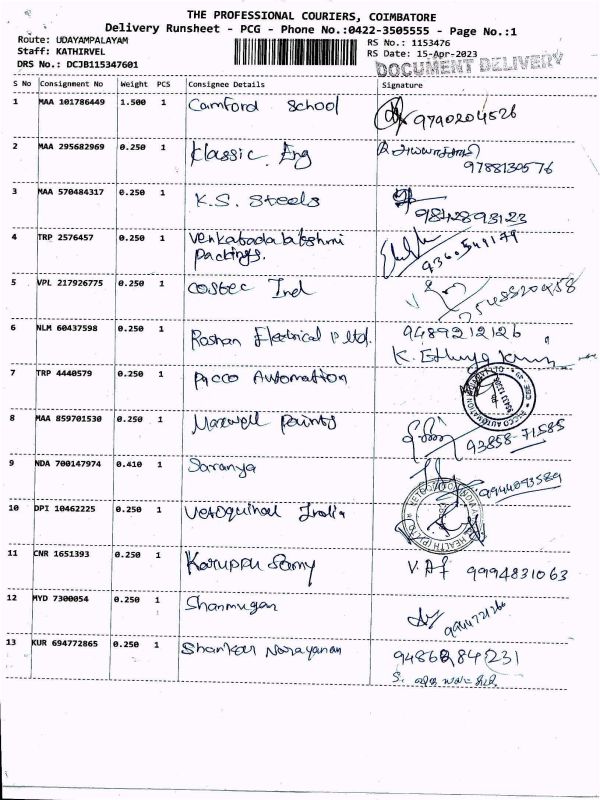 THE PROFESSIONAL COURIERS, COIMBATORE
Delivery Runsheet - PCG - Phone No.:0422-3505555 - Page No.:1
Route: UDAYAMPALAYAM
RS No.: 1153476
Staff: KATHIRVEL
RS Date: 15-Apr-2023
DRS No.: DCJB115347601
DOCUMENT DELIVERY
S No Consignment No Weight PCS Consignee Details Signature
1 MAA 101786449 1.500 1 Camford School 9790204526
2 MAA 295682969 0.250 1 Classic Eng 9788130576
3 MAA 570484317 0.250 1 K.S. Steels 9842893123
4 TRP 2576457 0.250 1 Venkatadalakshmi 9360549179
Packings.
5 VPL 217926775 0.250 1 Costec Ind
6 NLM 60437598 0.250 1 Roshan Electrical P ltd. 9489212126
7 TRP 4440579 0.250 1 Picco Automation
8 MAA 859701530 0.250 1 Maxwell Paints 93858-71585
9 NDA 700147974 0.410 1 Saranya 9944093589
10 DPI 10462225 0.250 1 Vetoquinol India
11 CNR 1651393 0.250 1 Karuppu Samy 9994831063
12 MYD 7300054 0.250 1 Shanmugan
13 KUR 694772865 0.250 1 Shankar Narayanan 9486284231